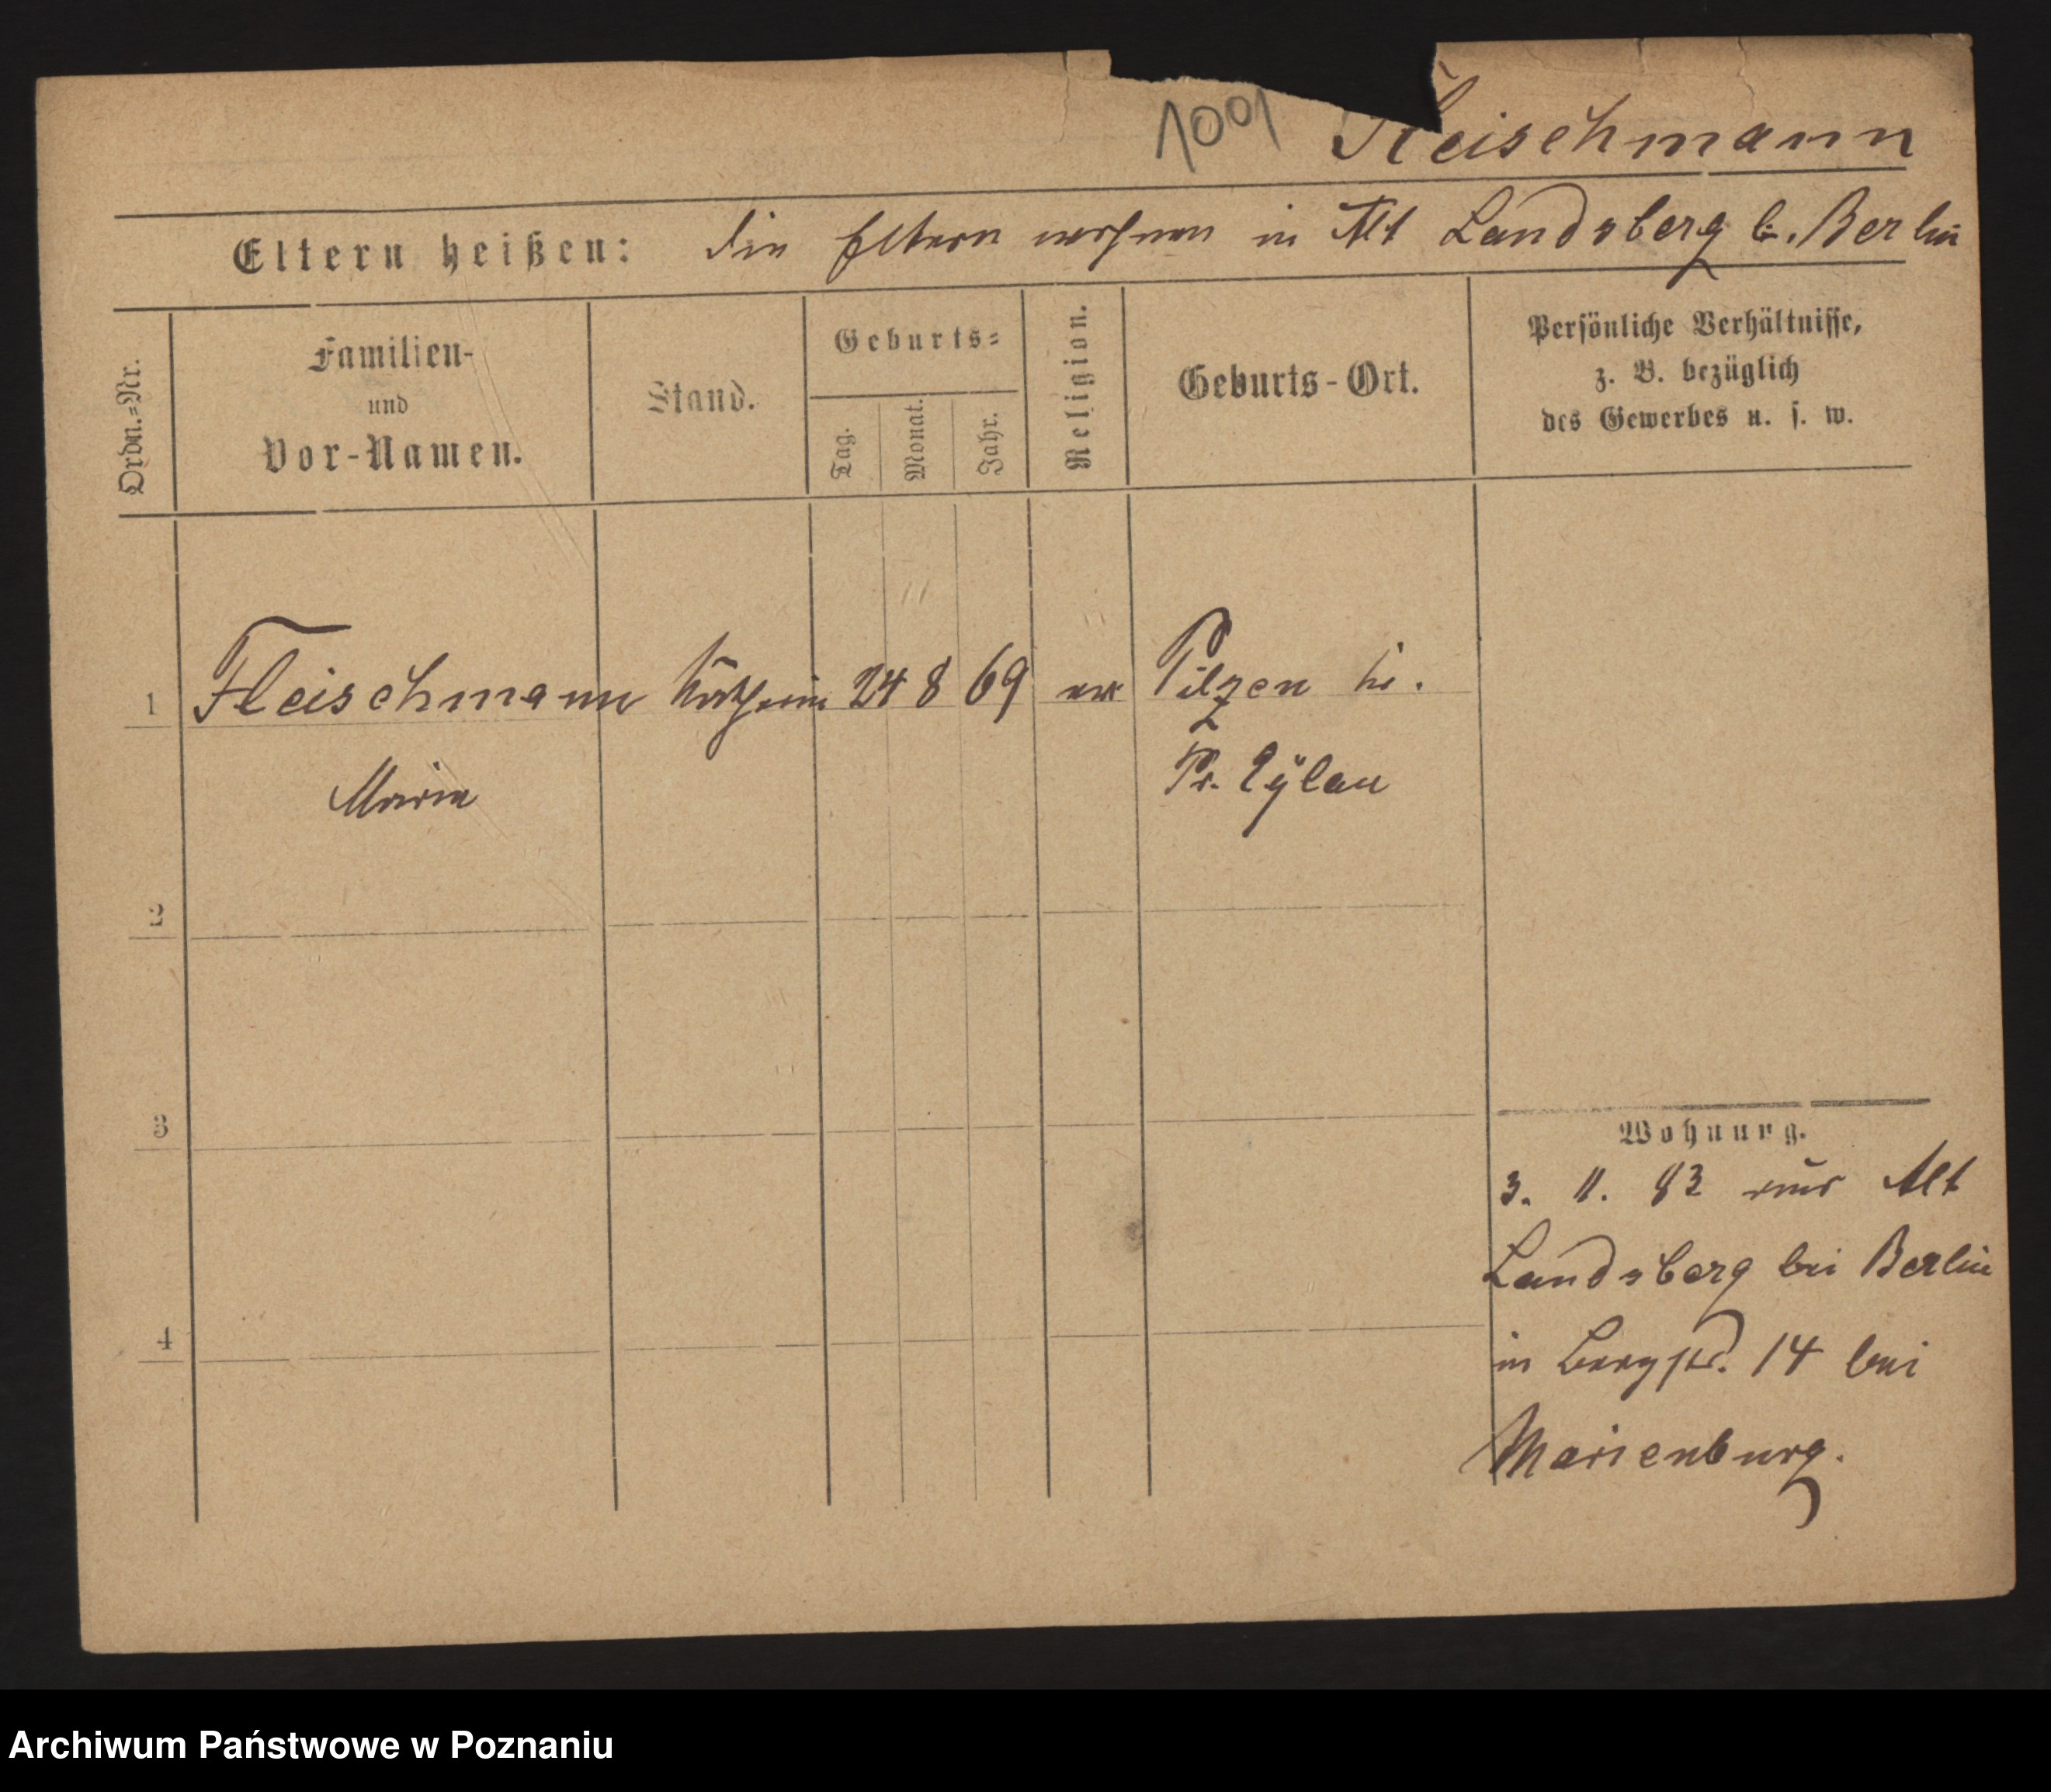 1001 Fleischmann
Eltern heißen: die Eltern wohnen in Alt Landsberg b. Berlin
Ordn.=Nr.
Familien-
und
Vor-Namen.
Stand.
Geburts=
Tag.
Monat.
Jahr.
Religion.
Geburts-Ort.
Persönliche Verhältnisse,
z. B. bezüglich
des Gewerbes u. s. w.
1 Fleischmann Köchin 24 8 69 Pilzen
Maria Pr. Eylau
2
3
4
Wohnung.
3. 11. 83 aus Alt
Landsberg bei Berlin
in Bergstr. 14 bei
Marienburg.
Archiwum Państwowe w Poznaniu